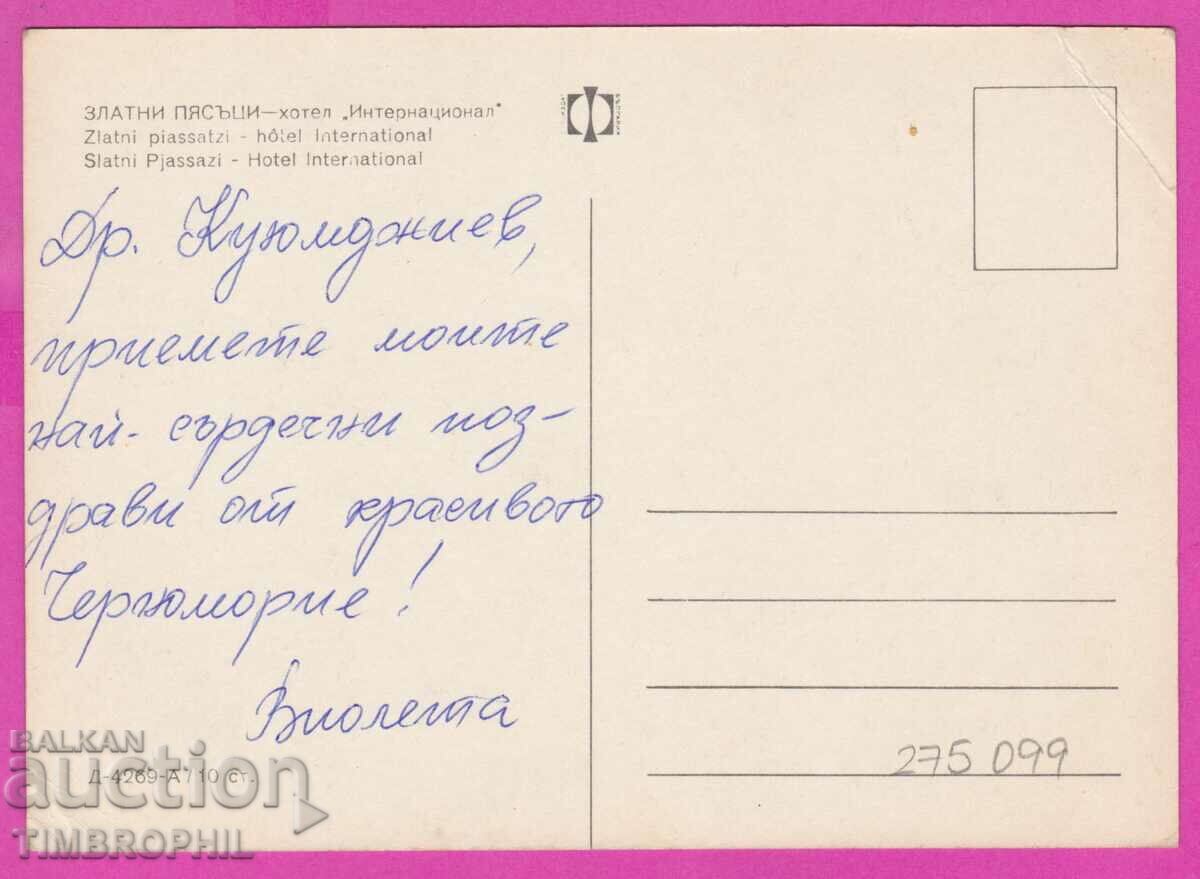 ЗЛАТНИ ПЯСЪЦИ—хотел „Интернационал"
Zlatni piassatzi - hôtel International
Slatni Pjassazi - Hotel International
Др. Куюмджиев,
приемете моите
най-сърдечни поз-
драви от красивото
Черноморие!
Виолета
Д-4269-А / 10 ст.
275 099
BALKAN
auction
TIMBROPHIL